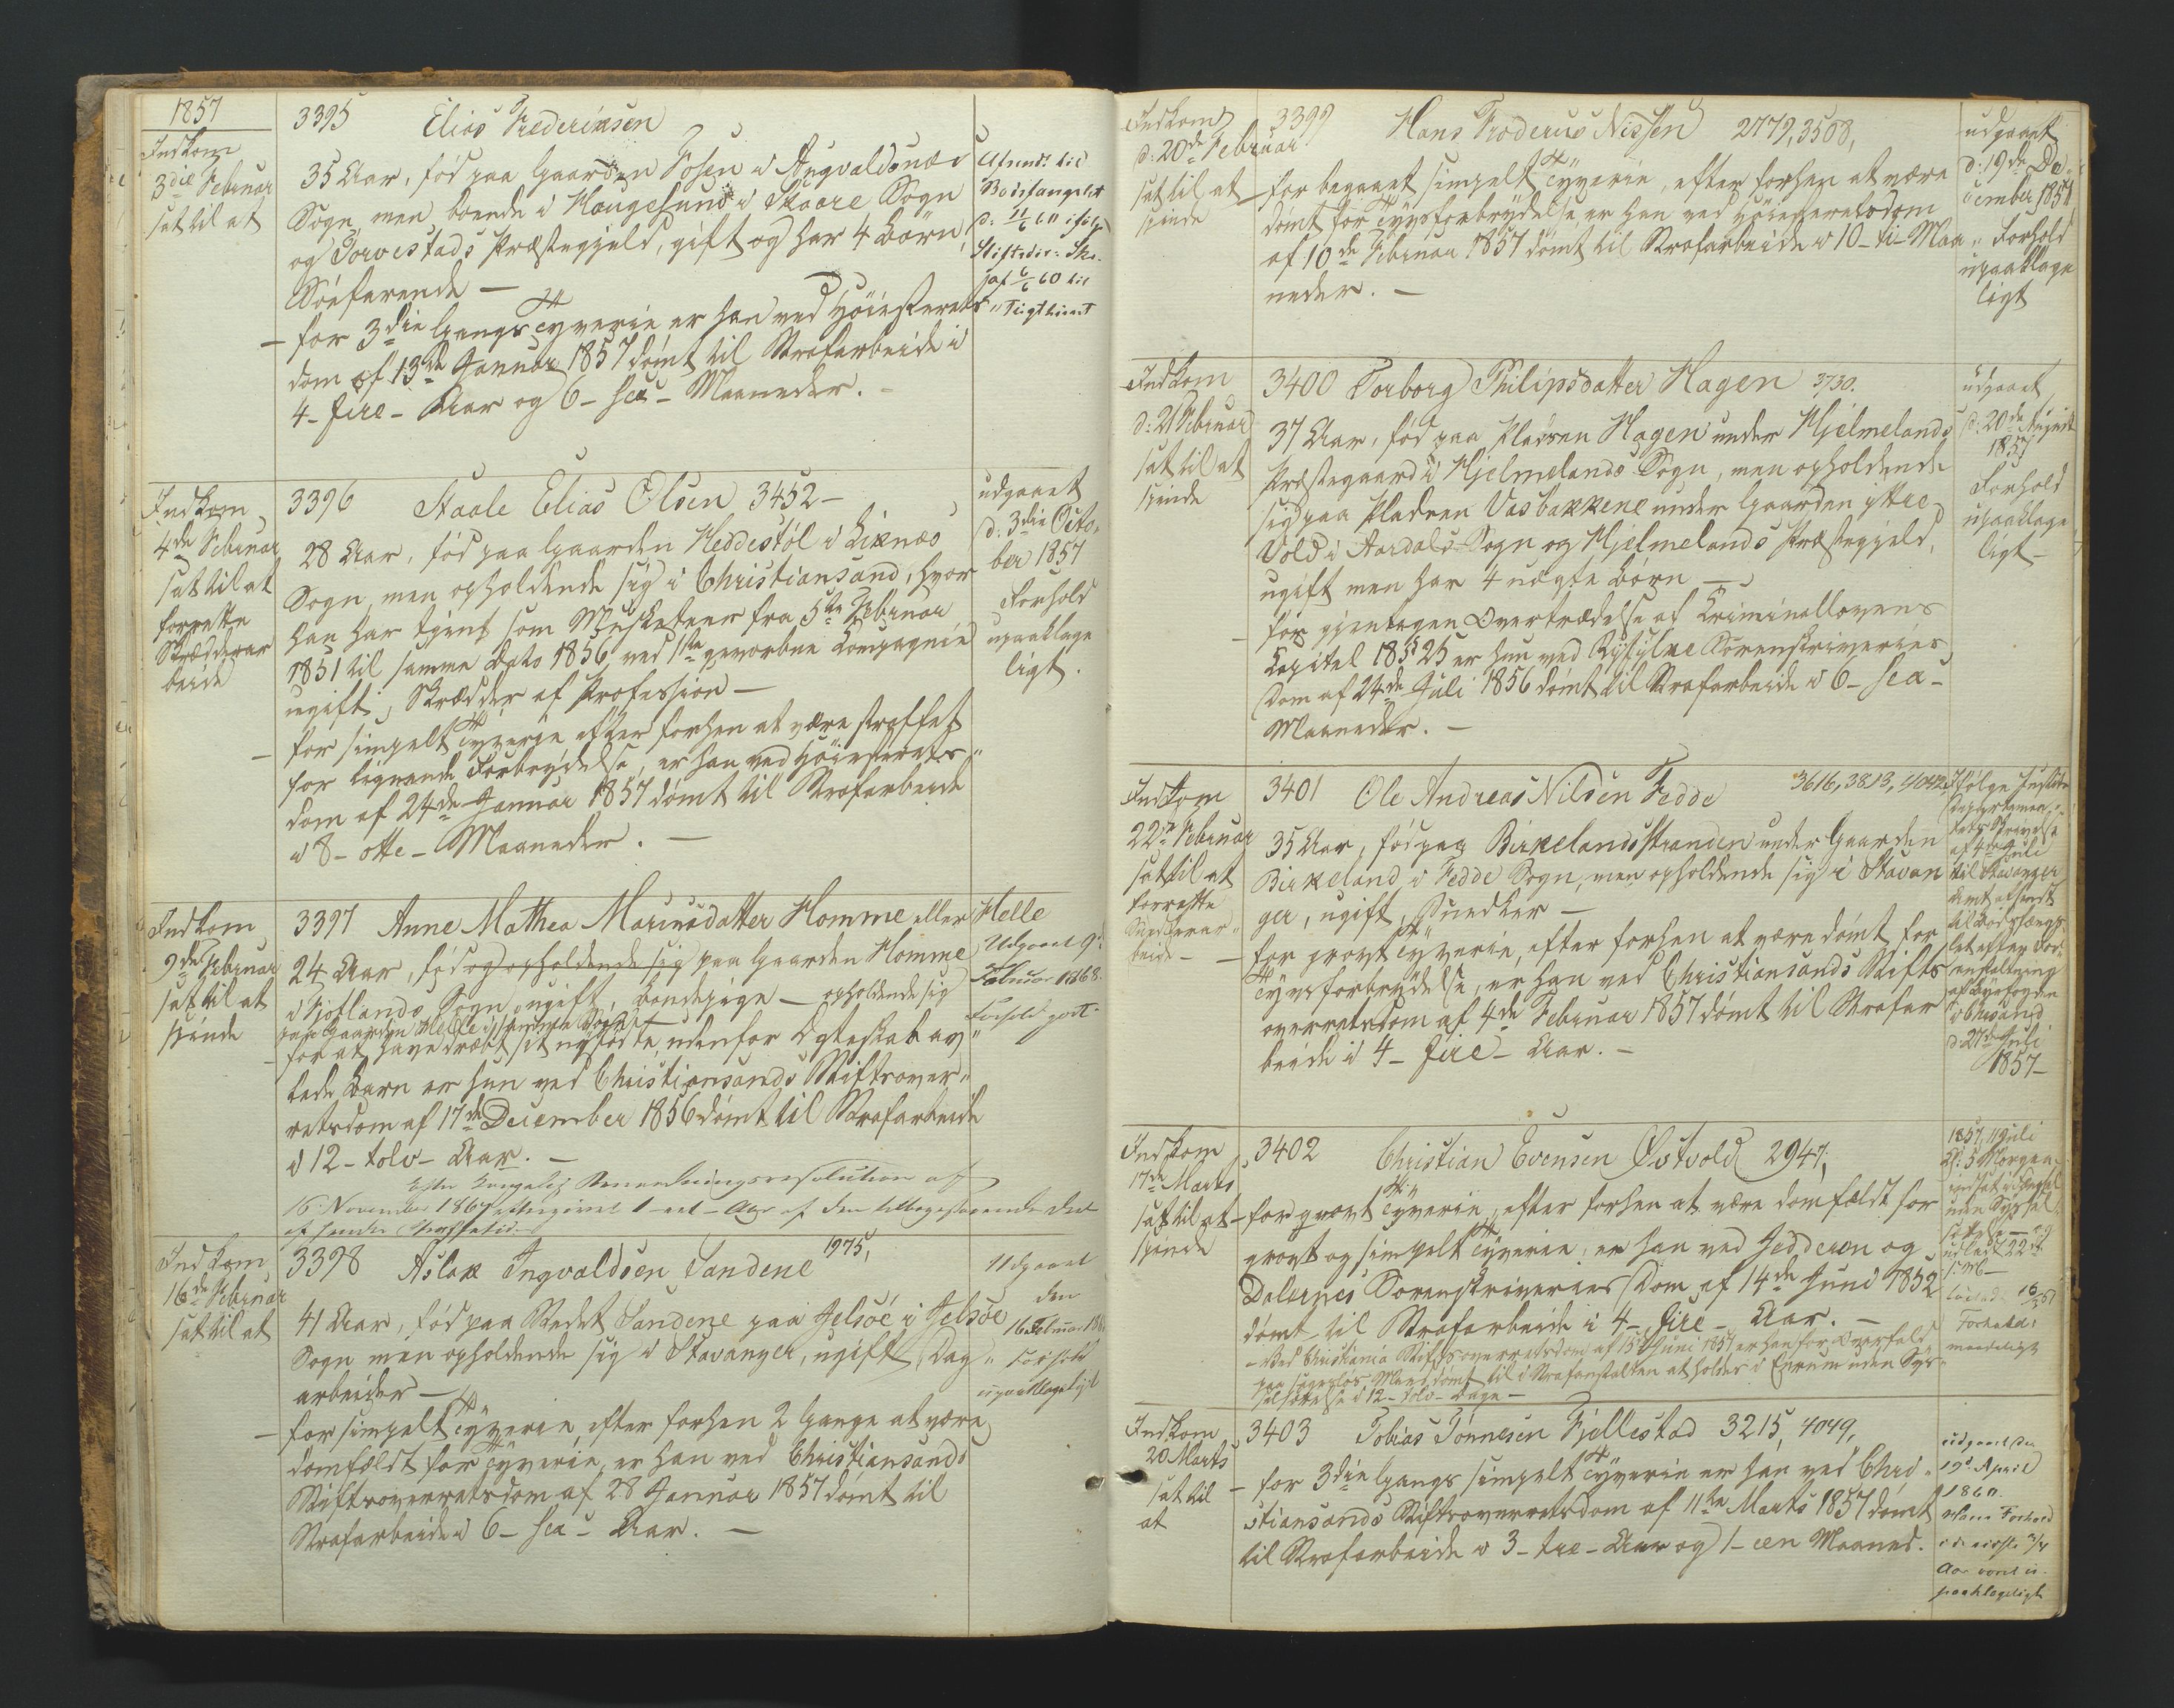 1857
Indkom
3die Februar
sat til at
3395 Elias Frederiksen
35 Aar, fød paa Gaarden Fosen i Augvaldsnæs
Sogn men boende i Haugesund i Skaare Sogn
og Torvestads Præstegjeld, gift og har 4 Børn,
Söefarende —
— for 3die Gangs Tyverie er han ved Höiesterets„
dom af 13de Januar 1857 dömt til Strafarbeide i
4 - fire - Aar og 6 - sex - Maaneder. —
Afsendt til
Bodsfængslet
d: 11/6 60 ifölge
Stiftsdir: Skr.
af 6/6 60 til
Tugthuset
Indkom
4de Februar
sat til at
forrette
Skrædderar
beide
3396 Staale Elias Olsen 3452 —
28 Aar, fød paa Gaarden Heddestöl i Liknæs
Sogn, men opholdende sig i Christiansand, hvor
han har tjent som Musketeer fra 5te Februar
1851 til samme Dato 1856 ved 1ste gevorbne Compagnie
ugift, Skrædder af Profession —
— for simpelt Tyverie efter forhen at være straffet
for lignende Forbrydelse, er han ved Höiesterets„
dom af 24de Januar 1857 dömt til Strafarbeide
i 8 - otte - Maaneder. —
udgaaet
d: 3die Octo„
ber 1857
Forhold
upaaklage
ligt.
Indkom
9de Februar
sat til at
spinde
3397 Anne Mathea Marinusdatter Homme eller Helle
24 Aar, fød og opholdende sig paa Gaarden Homme
i Fjotlands Sogn, ugift, bondepige — opholdende sig
paa Gaarden Helle i samme Sogn
— for at have dræbt sit nyfödte, udenfor Ægteskab av„
lede Barn er hun ved Christiansands Stiftsover„
retsdom af 17de December 1856 dömt til Strafarbeide
i 12 - tolv - Aar. —
Efter Kongelig Benaadningsresolution af
16 November 1867 eftergivet 1 - eet - Aar af den tilbagestaaende Deel
af hendes Straffetid. —
Udgaaet 9de
Februar 1868.
Forhold godt.
Indkom
16de Februar
sat til at
3398 Aslak Ingvaldsen Sandene 1975,
41 Aar, fød paa Stedet Sandene paa Jelsöe i Jelsöe
Sogn men opholdende sig i Stavanger, ugift, Dag„
arbeider —
— for simpelt Tyverie, efter forhen 2 Gange at være
domfældt for Tyverie, er han ved Christiansands
Stiftsoverretsdom af 28 Januar 1857 dömt til
Strafarbeide i 6 - sex - Aar. —
Udgaaet
den
16 Februar
Forhold
upaaklageligt
Indkom
d: 20de Februar
sat til at
spinde
3399 Hans Froderus Nissen 2779, 3508,
— for begaaet simpelt Tyverie, efter forhen at være
dömt for Tyvsforbrydelse, er han ved Höiesteretsdom
af 10de Februar 1857 dömt til Strafarbeide i 10 - ti - Maa„
neder. —
udgaaet
d: 19de De„
cember 1857
Forhold
upaaklage
ligt
Indkom
d: 21 Februar
sat til at
spinde
3400 Torborg Philipsdatter Hagen 3730.
37 Aar, fød paa Pladsen Hagen under Hjelmelands
Præstegaard i Hjelmelands Sogn, men opholdende
sig paa Pladsen Vasbakkene under Gaarden ytre
Vold i Aardals Sogn og Hjelmelands Præstegjeld,
ugift men har 4 uægte Börn —
— for gjentagen Overtrædelse af Criminallovens
Capitel 18 § 25 er hun ved Ryfylke Sorenskriveries
Dom af 24de Juli 1856 dömt til Strafarbeide i 6 - sex -
Maaneder. —
udgaaet
d: 20de August
1857
Forhold
upaaklage
ligt —
Indkom
22de Februar
sat til at
forrette
Snedkerar„
beide —
3401 Ole Andreas Nilsen Fedde 3616, 3813, 4042
35 Aar, fød paa Birkelandsstranden under Gaarden
Birkeland i Fedde Sogn, men opholdende sig i Stavan
ger, ugift, Snedker —
— for grovt Tyverie, efter forhen at være dömt for
Tyvsforbrydelse, er han ved Christiansands Stifts
overretsdom af 4de Februar 1857 dömt til Strafar
beide i 4 - fire - Aar. —
Ifölge Justits
Departemen„
tets Skrivelse
af 4de Juli
til Stavanger
Amt afsendt
til Bodsfængs
let efter For„
anstaltning
af Byefogden
i Chrsand
d: 27de Juli
1857 —
Indkom
17de Marts
sat til at
spinde
3402 Christian Evensen Østvold 2947,
— for grovt Tyverie, efter forhen at være domfældt for
grovt og simpelt Tyverie, er han ved Jedderen og
Dalernes Sorenskriveries Dom af 14de Juni 1852
dömt til Strafarbeide i 4 - fire - Aar. —
— Ved Christiania Stiftsoverretsdom af 15de Juni 1857 er han for Overfald
paa sageslös Mand dömt til i Strafanstalten at holdes i Eenrum uden Sys„
selsættelse i 12 - tolv - Dage —
1857, 11 Juli
Kl: 5 Morgen
indsat i Enesel
uden Syssel
sættelse — og
udladt 22de
Forholds
maadeligt
Indkom
20 Marts
sat til
at
3403 Tobias Tönnesen Fjellestad 3215, 4049,
— for 3die Gangs simpelt Tyverie er han ved Chri„
stiansands Stiftsoverretsdom af 11te Marts 1857 dömt
til Strafarbeide i 3 - tre - Aar og 1 - een Maaned.
udgaaet den
19de April
1860.
Hans Forhold
i de sidste 3/4
Aar været u„
paaklageligt